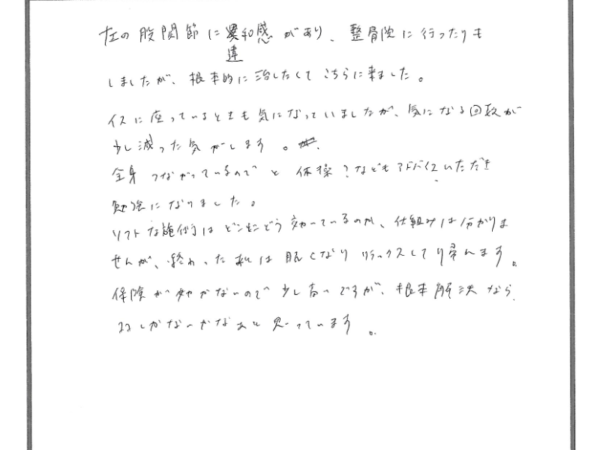 左の股関節に違和感があり、整骨院に行ったりも
しましたが、根本的に治したくてこちらに来ました。
イスに座っているときも気になっていましたが、気になる回数が
少し減った気がします。
全身つながっているのでと体操?などもアドバイスいただき
勉強になりました。
ソフトな施術はどこにどう効いているのか、仕組みは分かりま
せんが、終わった私は眠くなりリラックスして帰れます。
保険が効かないので少し高いですが、根本解決なら
しかないかなあと思っています。